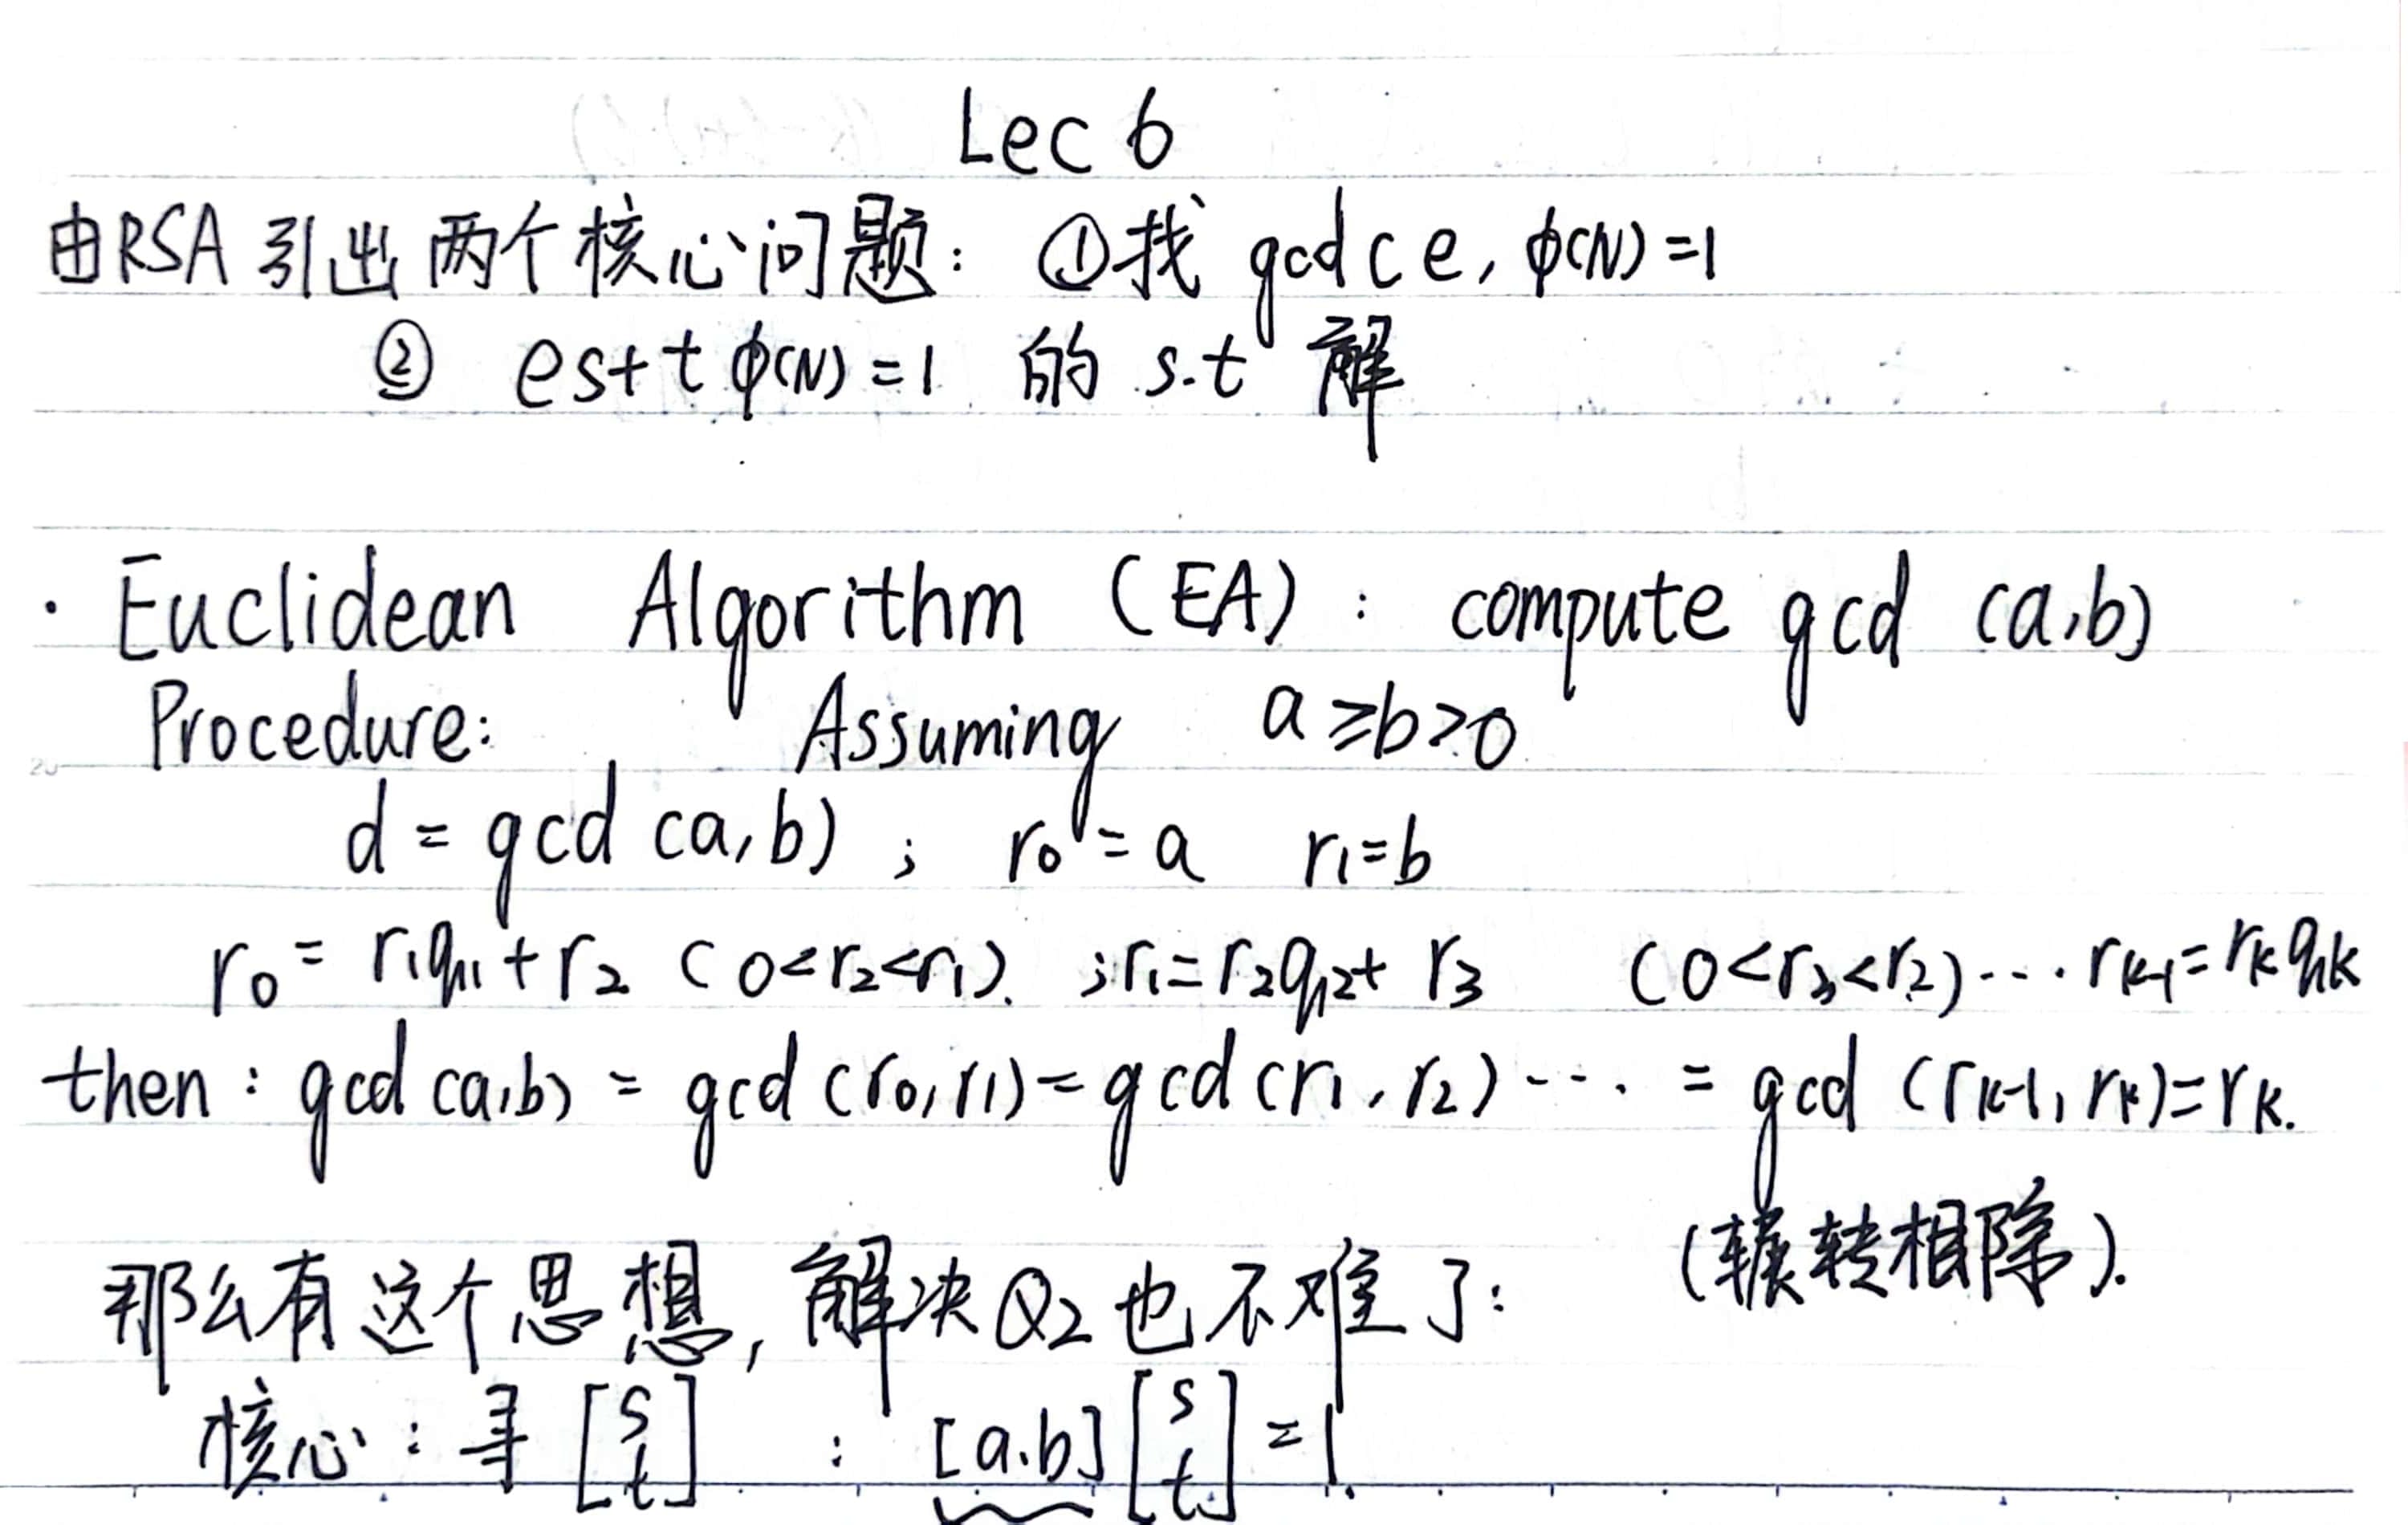 Lec 6
由RSA引出两个核心问题: ①找 gcd(e, φ(N)=1
② es+tφ(N)=1 的 s.t 解
· Euclidean Algorithm (EA) : compute gcd (a,b)
Procedure: Assuming a≥b>0
d = gcd (a,b) ; r₀=a r₁=b
r₀ = r₁q₁+r₂ (0<r₂<r₁). ;r₁=r₂q₂+ r₃ (0<r₃<r₂)····rₖ₋₁=rₖqₖ
then : gcd(a,b) = gcd(r₀,r₁)=gcd(r₁,r₂)···· = gcd (rₖ₋₁,rₖ)=rₖ.
(辗转相除).
那么有这个思想, 解决Q2也不难了:
核心: 寻 [s t] : [a.b][s t]=1